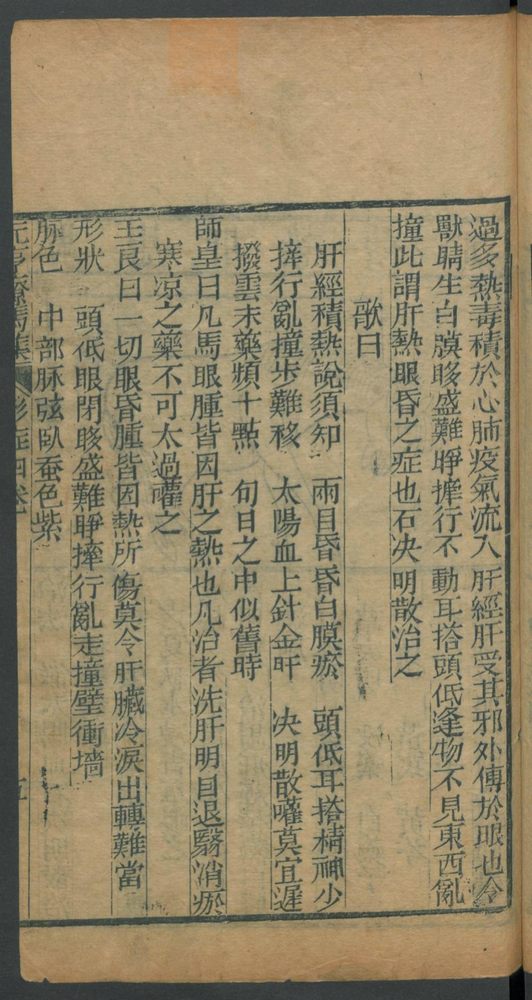 過多熱毒積於心肺疫氣流入肝經肝受其邪外傳於眼也令
獸睛生白膜眵盛難睜捧行不動耳搭頭低逢物不見東西亂
撞此謂肝熱眼昏之症也石决明散治之
歌曰
肝經積熱說須知 兩目昏昏白膜瘀 頭低耳搭精神少
捧行亂撞步難移 太陽血上針金𠦑 决明散嚾莫宜遲
撥雲末藥頻十點 旬日之中似舊時
師皇曰凡馬眼腫皆因肝之熱也凡治者洗肝明目退翳消瘀
寒凉之藥不可太過嚾之
王良曰一切眼昏腫皆因熱所傷莫令肝臟冷淚出轉難當
形狀 頭低眼閉眵盛難睜捧行亂走撞壁衝墻
脉色 中部脉弦臥蚕色紫
元亨療馬集 形症四卷